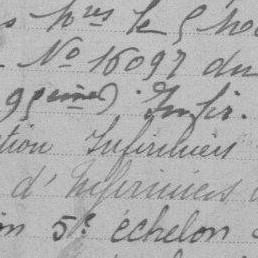 hres le 5
No 16097 du
Infir.
tion Infirmiers
d'Infirmiers
on 5e échelon